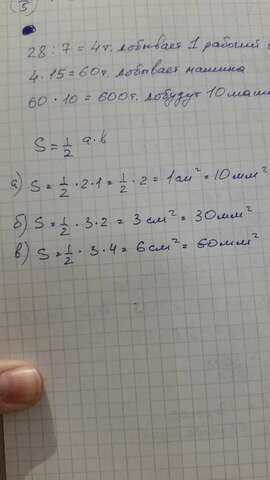 5)
28 : 7 = 4т. добывает 1 рабочий
4 · 15 = 60т. добывает машина
60 · 10 = 600т. добудут 10 маши
S = 1/2 a·b
а) S = 1/2 · 2 · 1 = 1/2 · 2 = 1см² = 10мм²
б) S = 1/2 · 3 · 2 = 3 см² = 30мм²
в) S = 1/2 · 3 · 4 = 6см² = 60мм²